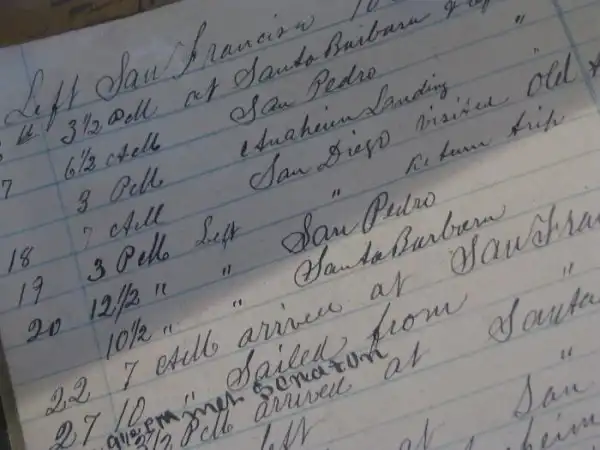 Left San Francisco 10
3 1/2 PM at Santa Barbara
7 6 1/2 AM San Pedro "
3 PM Anaheim Landing "
18 7 AM San Diego visited Old
19 3 PM Left " Return trip
20 12 1/2 " " San Pedro
10 1/2 " " Santa Barbara
22 7 AM arrived at San Fran
27 10 " Sailed from "
9 1/2 PM met Senator
3 1/2 PM arrived at Santa
left "
at San